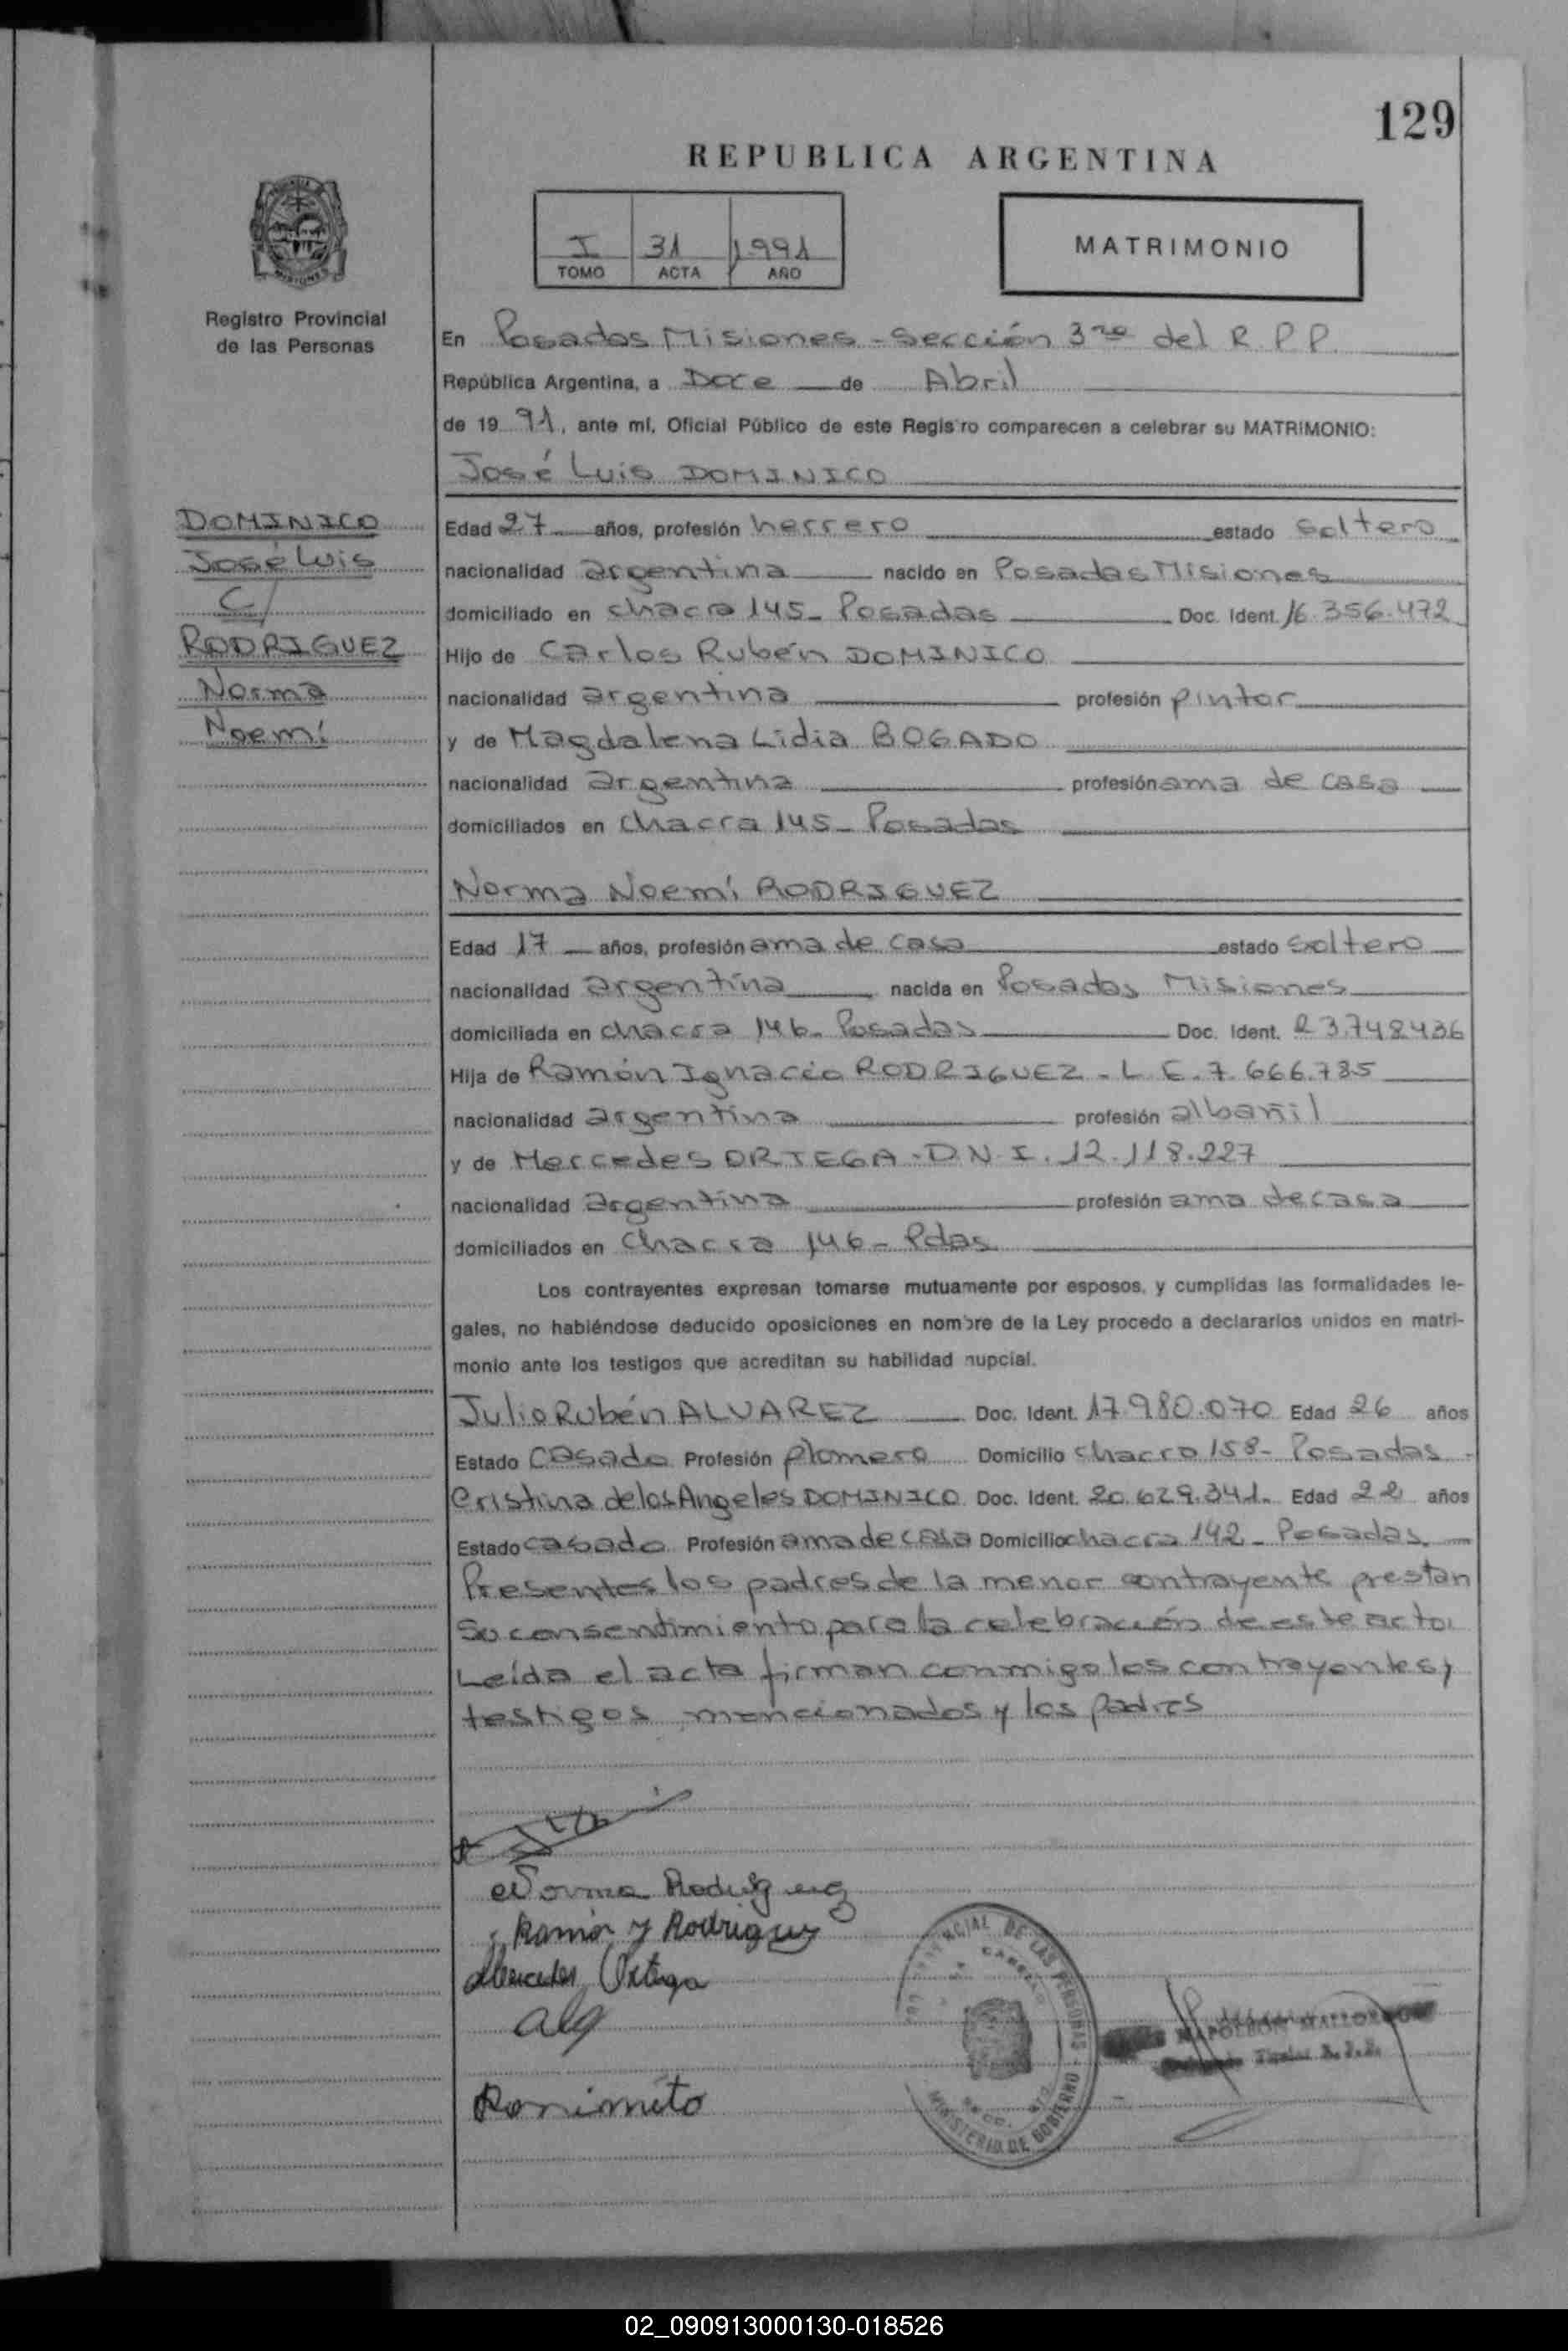 129
REPUBLICA ARGENTINA
I 31 1991
TOMO ACTA AÑO
MATRIMONIO
Registro Provincial
de las Personas
En Posadas Misiones - Sección 3ra del R.P.P.
República Argentina, a Doce de Abril
de 19 91, ante mí, Oficial Público de este Registro comparecen a celebrar su MATRIMONIO:
José Luis DOMINICO
DOMINICO
José Luis
C/
RODRIGUEZ
Norma
Noemí
Edad 27 años, profesión herrero estado soltero
nacionalidad argentina nacido en Posadas Misiones
domiciliado en chacra 145 - Posadas Doc. Ident. 16.356.472
Hijo de Carlos Rubén DOMINICO
nacionalidad argentina profesión pintor
y de Magdalena Lidia BOGADO
nacionalidad argentina profesión ama de casa
domiciliados en chacra 145 - Posadas
Norma Noemí RODRIGUEZ
Edad 17 años, profesión ama de casa estado soltero
nacionalidad argentina nacida en Posadas Misiones
domiciliada en chacra 146 - Posadas Doc. Ident. 23.748.436
Hija de Ramón Ignacio RODRIGUEZ - L.E. 7.666.785
nacionalidad argentina profesión albañil
y de Mercedes ORTEGA - D.N.I. 12.118.227
nacionalidad argentina profesión ama de casa
domiciliados en chacra 146 - Pdas
Los contrayentes expresan tomarse mutuamente por esposos, y cumplidas las formalidades le-
gales, no habiéndose deducido oposiciones en nombre de la Ley procedo a declararlos unidos en matri-
monio ante los testigos que acreditan su habilidad nupcial.
Julio Rubén ALVAREZ Doc. Ident. 17.980.070 Edad 26 años
Estado casado Profesión plomero Domicilio chacra 158 - Posadas
Cristina de los Angeles DOMINICO Doc. Ident. 20.629.341. Edad 22 años
Estado casado Profesión ama de casa Domicilio chacra 142 - Posadas.
Presentes los padres de la menor contrayente prestan
su consentimiento para la celebración de este acto.
Leída el acta firman conmigo los contrayentes,
testigos mencionados y los padres
Norma Rodriguez
Ramon y Rodriguez
Mercedes Ortega
PROVINCIAL DE LAS PERSONAS
MINISTERIO DE GOBIERNO
NAPOLEON
Titular
02_090913000130-018526